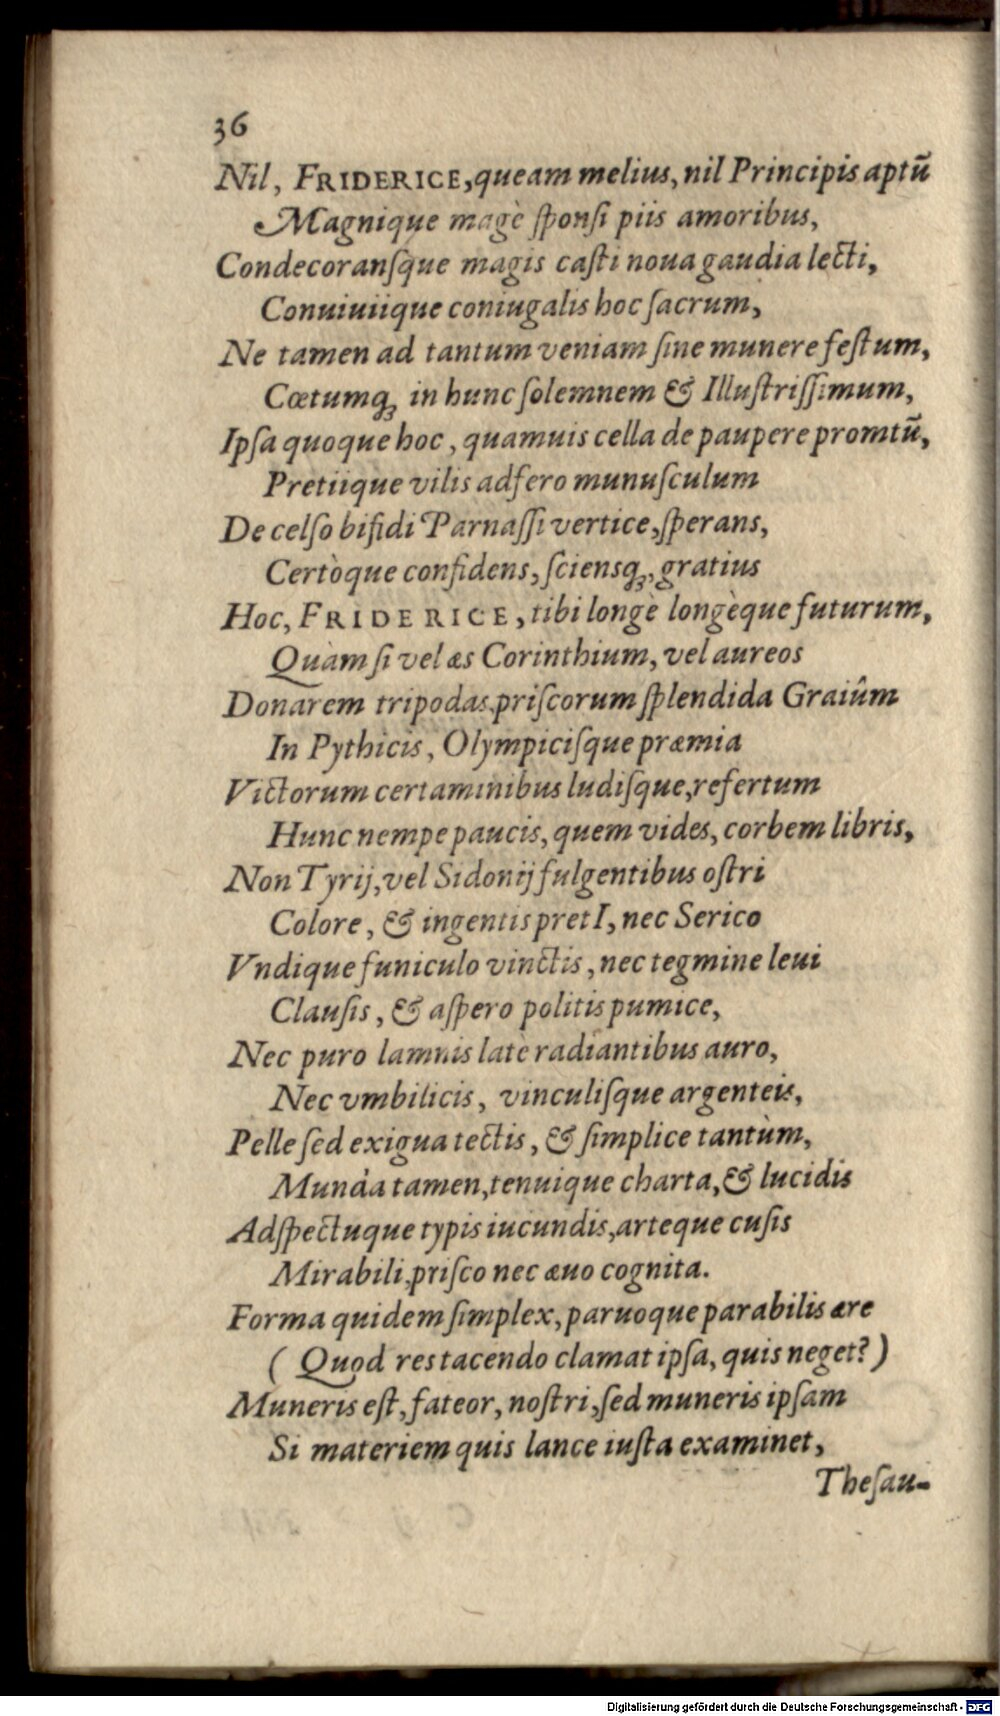 36
Nil, FRIDERICE, queam melius, nil Principis aptũ
Magnique magè ſponſi piis amoribus,
Condecoranſque magis caſti noua gaudia lecti,
Conuiuiique coniugalis hoc ſacrum,
Ne tamen ad tantum veniam ſine munere feſtum,
Cœtumq́; in hunc ſolemnem & Illuſtriſſimum,
Ipſa quoque hoc, quamuis cella de paupere promtũ,
Pretiique vilis adfero munuſculum
De celſo bifidi Parnaſſi vertice, ſperans,
Certòque confidens, ſciensq́;, gratius
Hoc, FRIDERICE, tibi longè longèque futurum,
Quàm ſi vel æs Corinthium, vel aureos
Donarem tripodas, priſcorum ſplendida Graiûm
In Pythicis, Olympiciſque præmia
Victorum certaminibus ludiſque, refertum
Hunc nempe paucis, quem vides, corbem libris,
Non Tyrij, vel Sidonij fulgentibus oſtri
Colore, & ingentis pretI, nec Serico
Vndique funiculo vinctis, nec tegmine leui
Clauſis, & aſpero politis pumice,
Nec puro lamnis latè radiantibus auro,
Nec vmbilicis, vinculiſque argenteis,
Pelle ſed exigua tectis, & ſimplice tantùm,
Munda tamen, tenuique charta, & lucidis
Adſpectuque typis iucundis, arteque cuſis
Mirabili, priſco nec æuo cognita.
Forma quidem ſimplex, paruoque parabilis ære
(Quod res tacendo clamat ipſa, quis neget?)
Muneris eſt, fateor, noſtri, ſed muneris ipſam
Si materiem quis lance iuſta examinet,
Theſau-
Digitalisierung gefördert durch die Deutsche Forschungsgemeinschaft - DFG